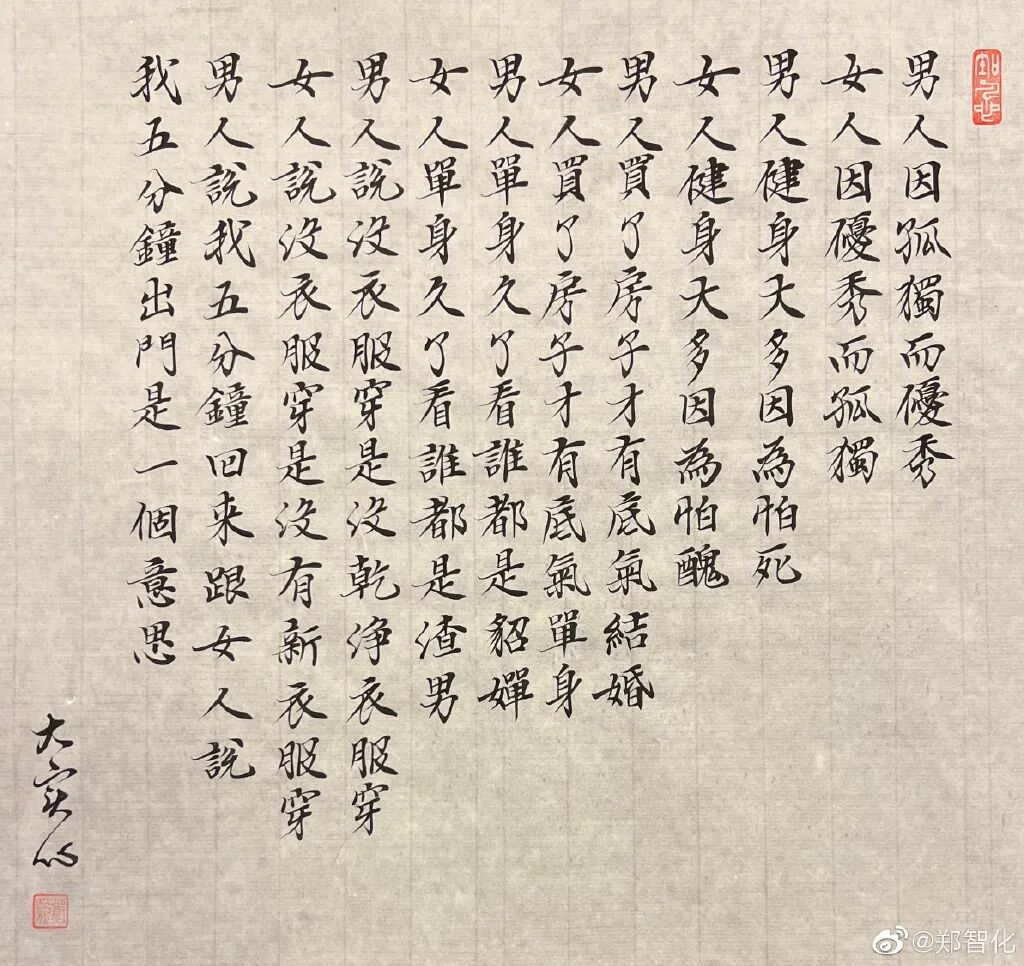 男人因孤獨而優秀
女人因優秀而孤獨
男人健身大多因為怕死
女人健身大多因為怕醜
男人買了房子才有底氣結婚
女人買了房子才有底氣單身
男人單身久了看誰都是貂嬋
女人單身久了看誰都是渣男
男人說没衣服穿是没乾净衣服穿
女人說没衣服穿是没有新衣服穿
男人說我五分鐘回来跟女人說
我五分鐘出門是一個意思
大实心
@郑智化